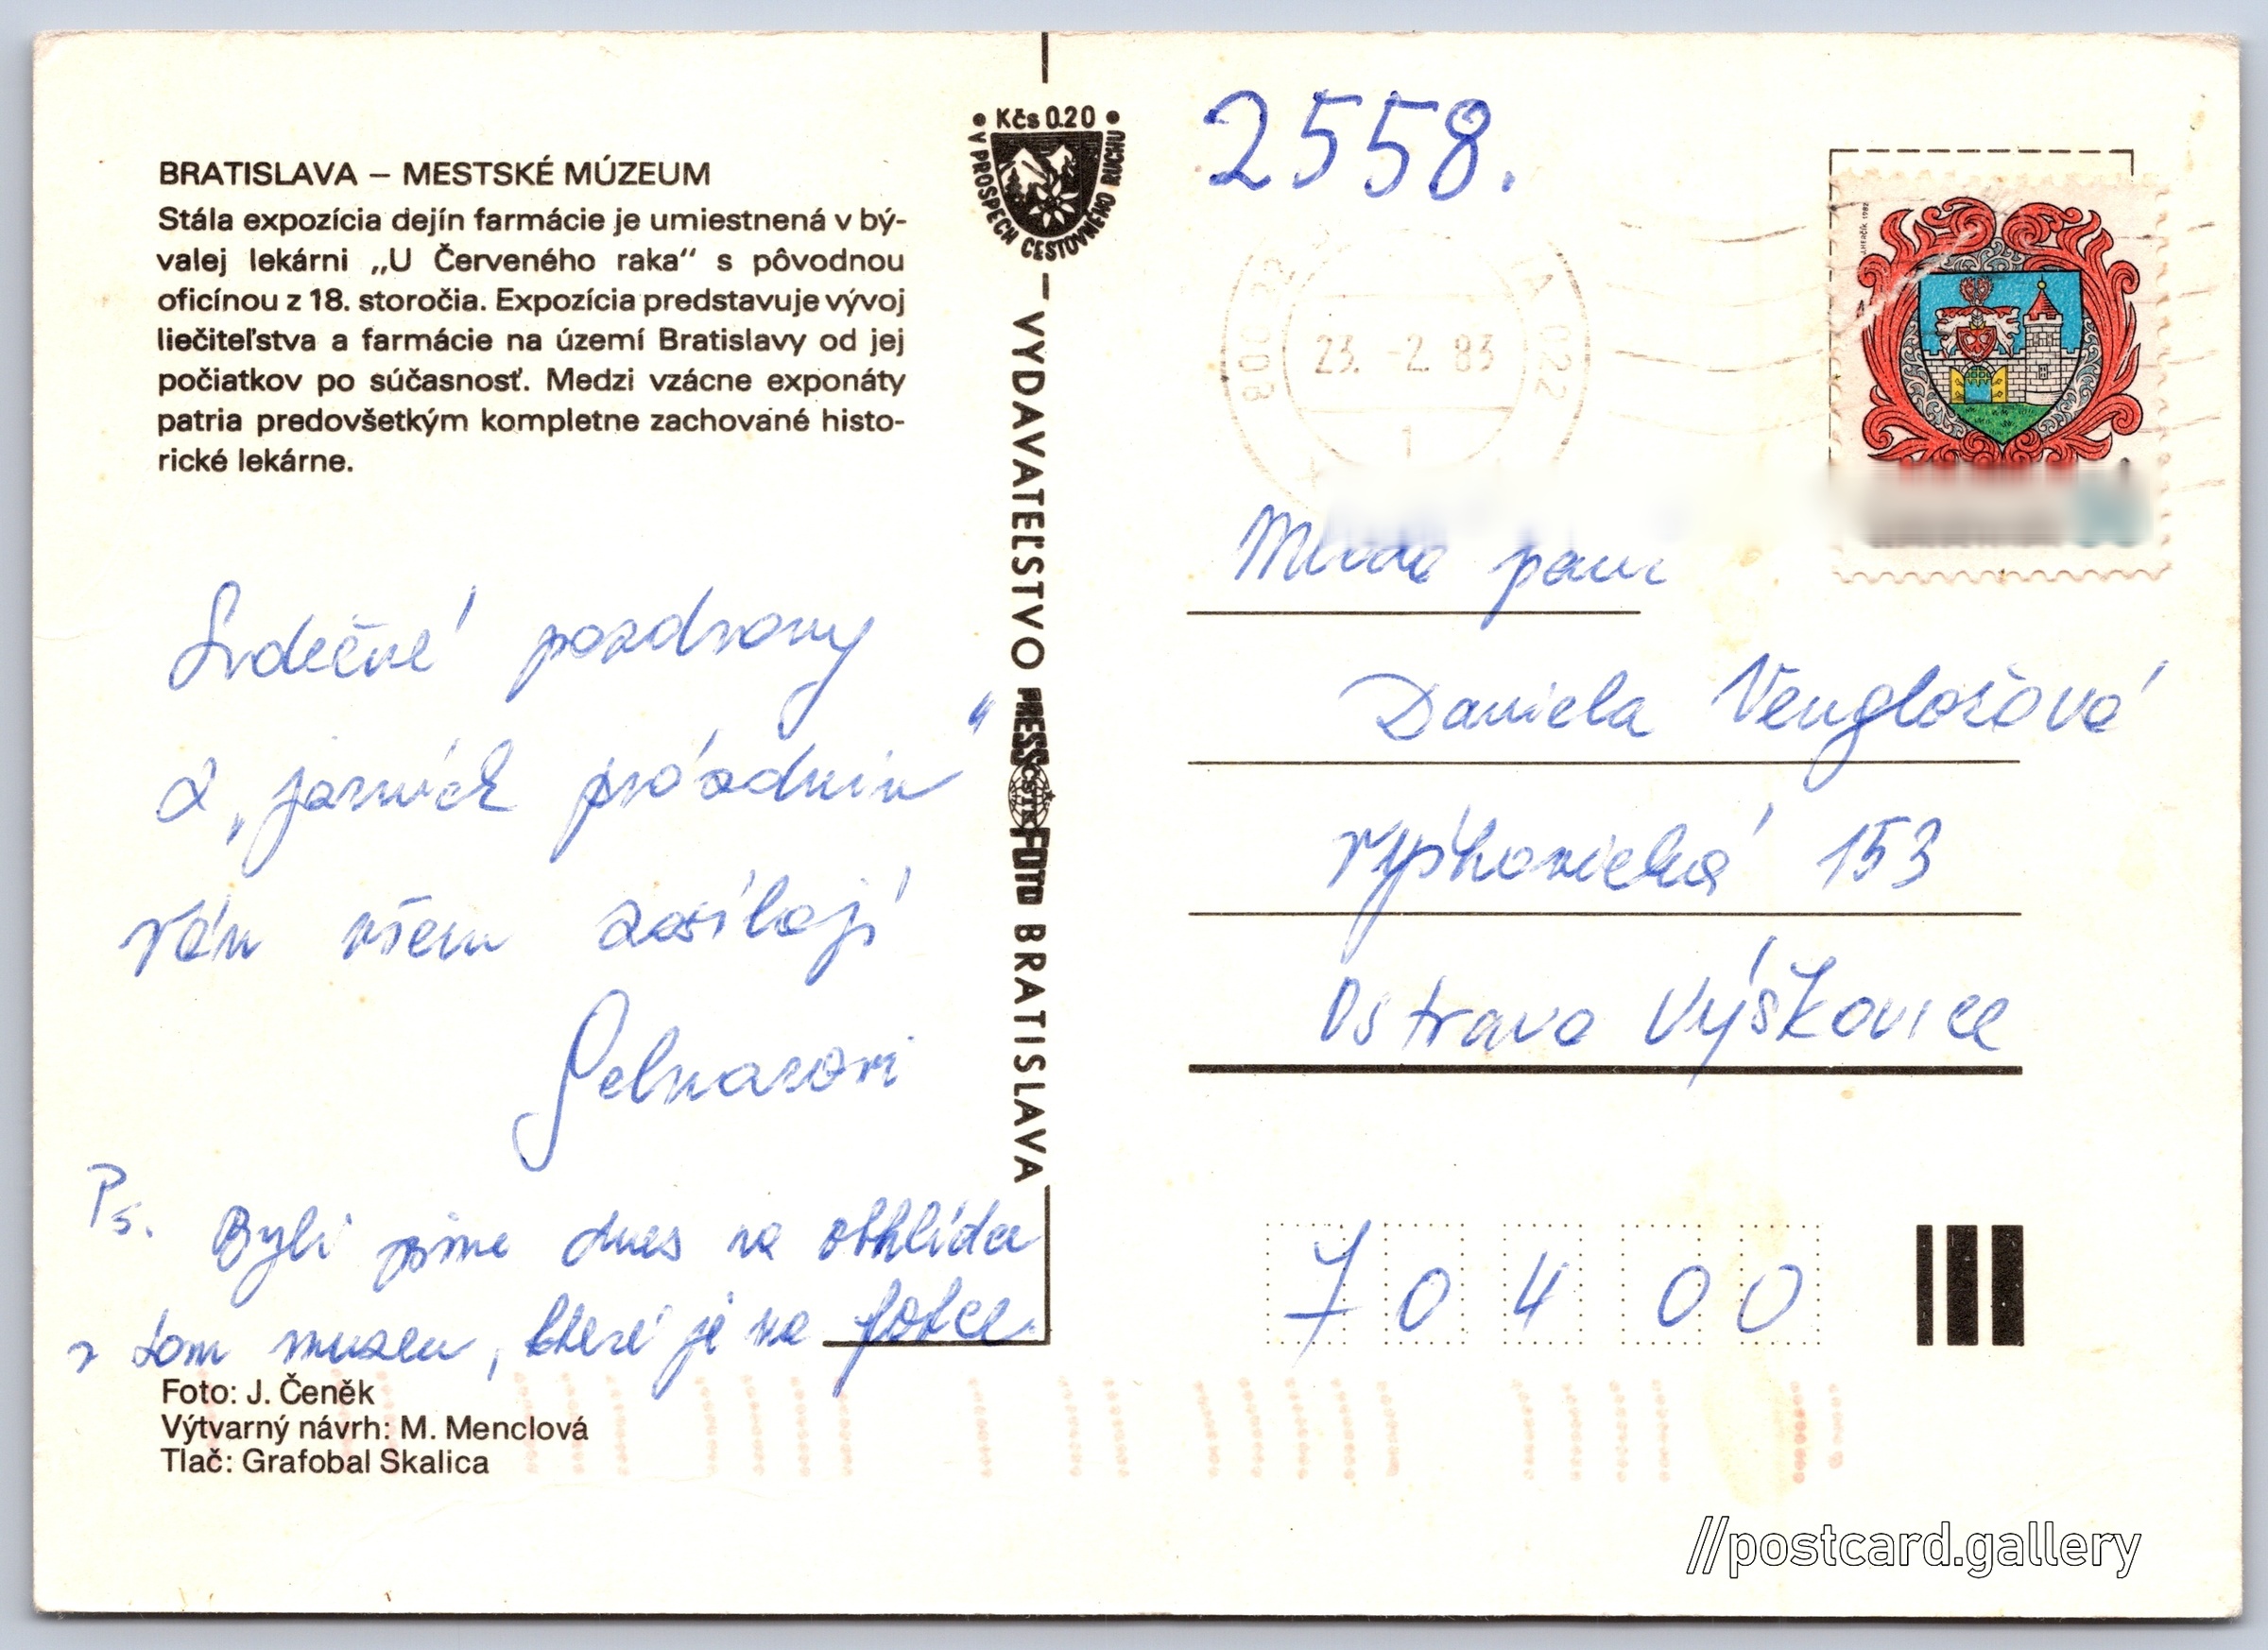 BRATISLAVA – MESTSKÉ MÚZEUM
Stála expozícia dejín farmácie je umiestnená v bý-
valej lekárni „U Červeného raka“ s pôvodnou
oficínou z 18. storočia. Expozícia predstavuje vývoj
liečiteľstva a farmácie na území Bratislavy od jej
počiatkov po súčasnosť. Medzi vzácne exponáty
patria predovšetkým kompletne zachované histo-
rické lekárne.
Srdečné pozdravy
z „jarních prázdnin“
Vám všem zasílají
Ps. Byli jsme dnes na obhlídce
v tom museu, které je na fotce
Foto: J. Čeněk
Výtvarný návrh: M. Menclová
Tlač: Grafobal Skalica
Kčs 0.20
V PROSPECH CESTOVNÉHO RUCHU
VYDAVATEĽSTVO PRESSFOTO BRATISLAVA
2558.
23. -2. 83
1
022
Mladá paní
Daniela Venglošová
Výškovická 153
Ostrava Výškovice
704 00
//postcard.gallery